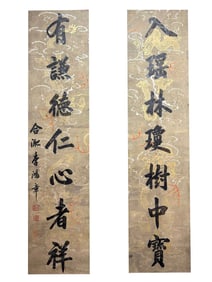 入瑤林瓊樹中寶
有謙德仁心者祥
合淝李鴻章